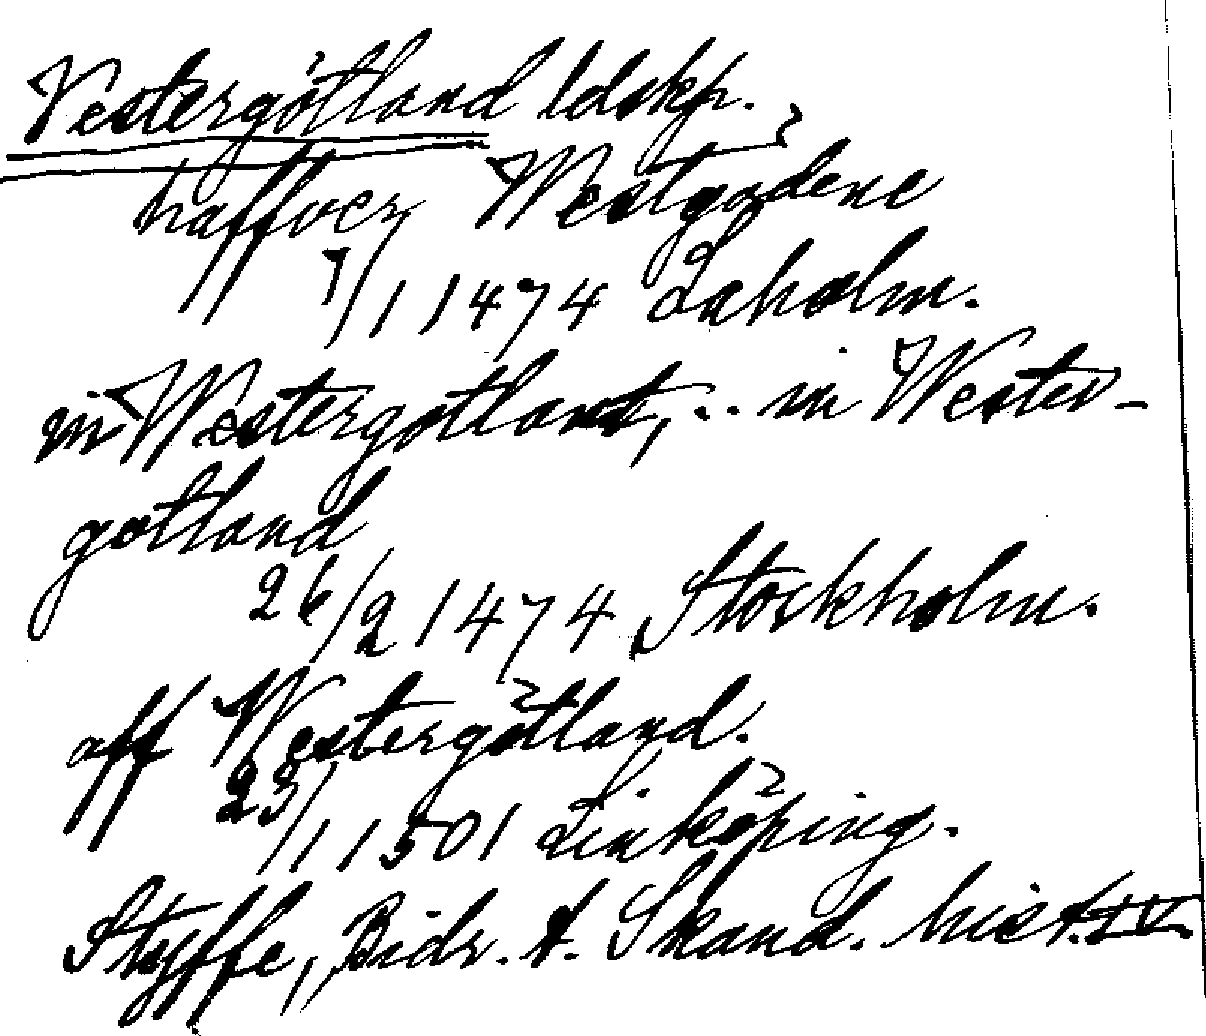 Vestergötland ldskp.
haffver Westgødene
7/1 1474 Laholm.
in Westergotland, .. in Wester-
gotland
26/2 1474 Stockholm.
aff Westergötland.
23/1 1501 Linköping.
Styffe, Bidr. t. Skand. hist. IV.